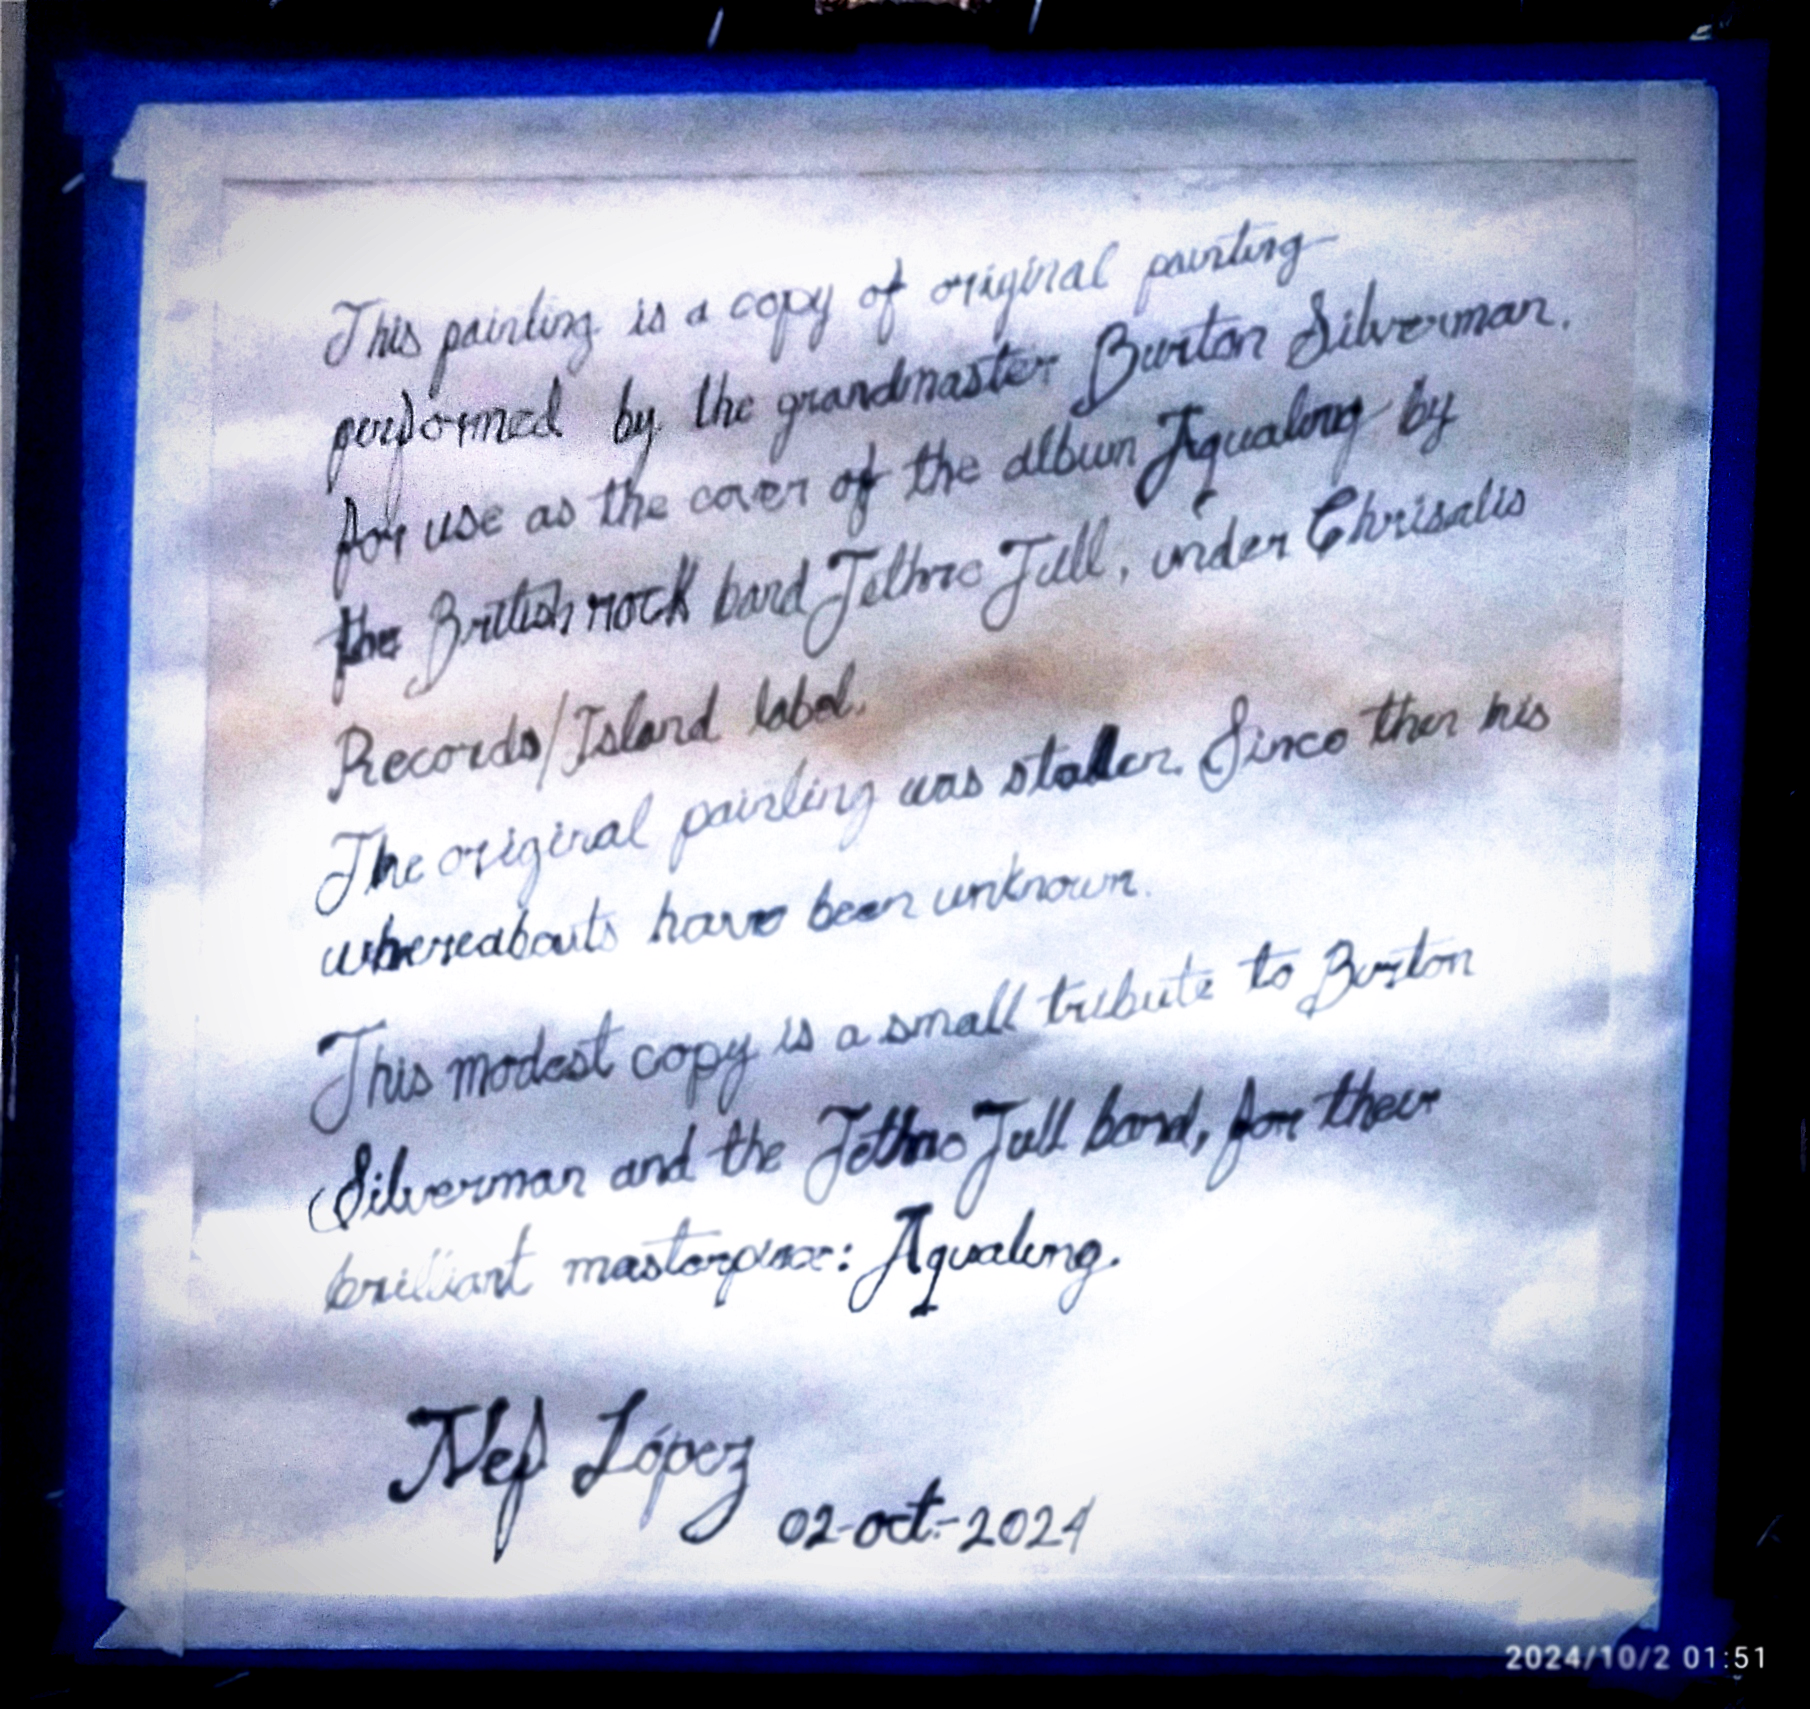 This painting is a copy of original painting
performed by the grandmaster Burton Silverman.
for use as the cover of the album Aqualung by
the British rock band Jethro Tull, under Chrisalis
Records/Island label.
The original painting was stollen. Since then his
whereabouts have been unknown.
This modest copy is a small tribute to Burton
Silverman and the Jethro Tull band, for their
brilliant masterpiece: Aqualung.
Nef López
02-oct.-2024
2024/10/2 01:51